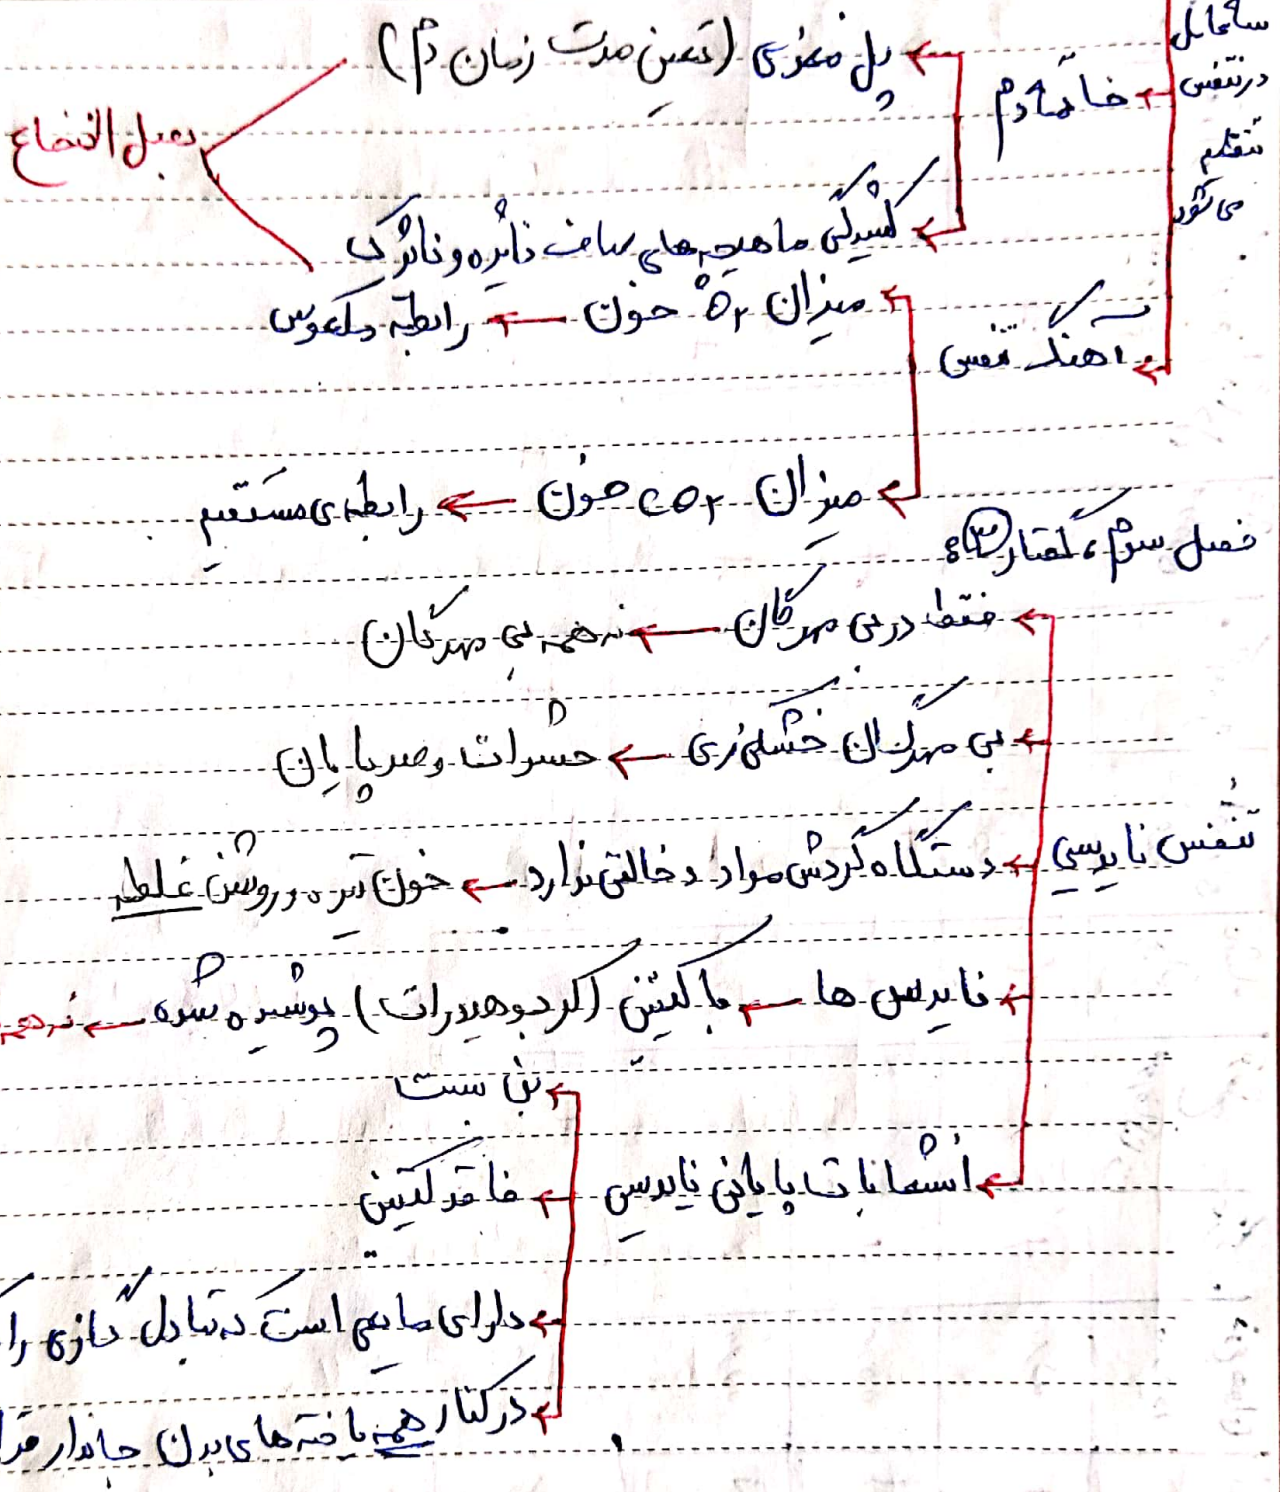 مسائل در تنفس تنظیم می‌شود
خاتمه دم
پل مغزی (تعیین مدت زمان دم)
کشیدگی ماهیچه‌های صاف نایژه و نایژک
بصل النخاع
آهنگ تنفس
میزان O₂ خون ← رابطه معکوس
میزان CO₂ خون ← رابطه‌ی مستقیم
فصل سوم، گفتار ۳:
تنفس نایدیسی
فقط در بی مهرگان ← نه همه بی مهرگان
بی مهرگان خشکی‌زی ← حشرات و صدپایان
دستگاه گردش مواد دخالتی ندارد ← خون تیره و روشن غلط
نایدیس ها ← با کیتین (کربوهیدرات) پوشیده شده ← نه همه
انشعابات پایانی نایدیس
بن بست
فاقد کیتین
دارای مایعی است که تبادل گازی را
در کنار همه یاخته‌های بدن جاندار